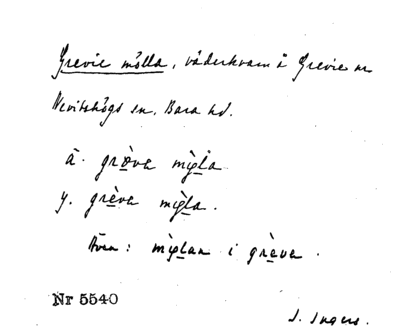 Grevie mölla, väderkvarn å Grevie nr
Nevitshögs sn, Bara hd.
ä. grèva mø̀la
y. grèva mø̀la.
Även: mø̀lan i grèva.
Nr 5540
I. Ingers.